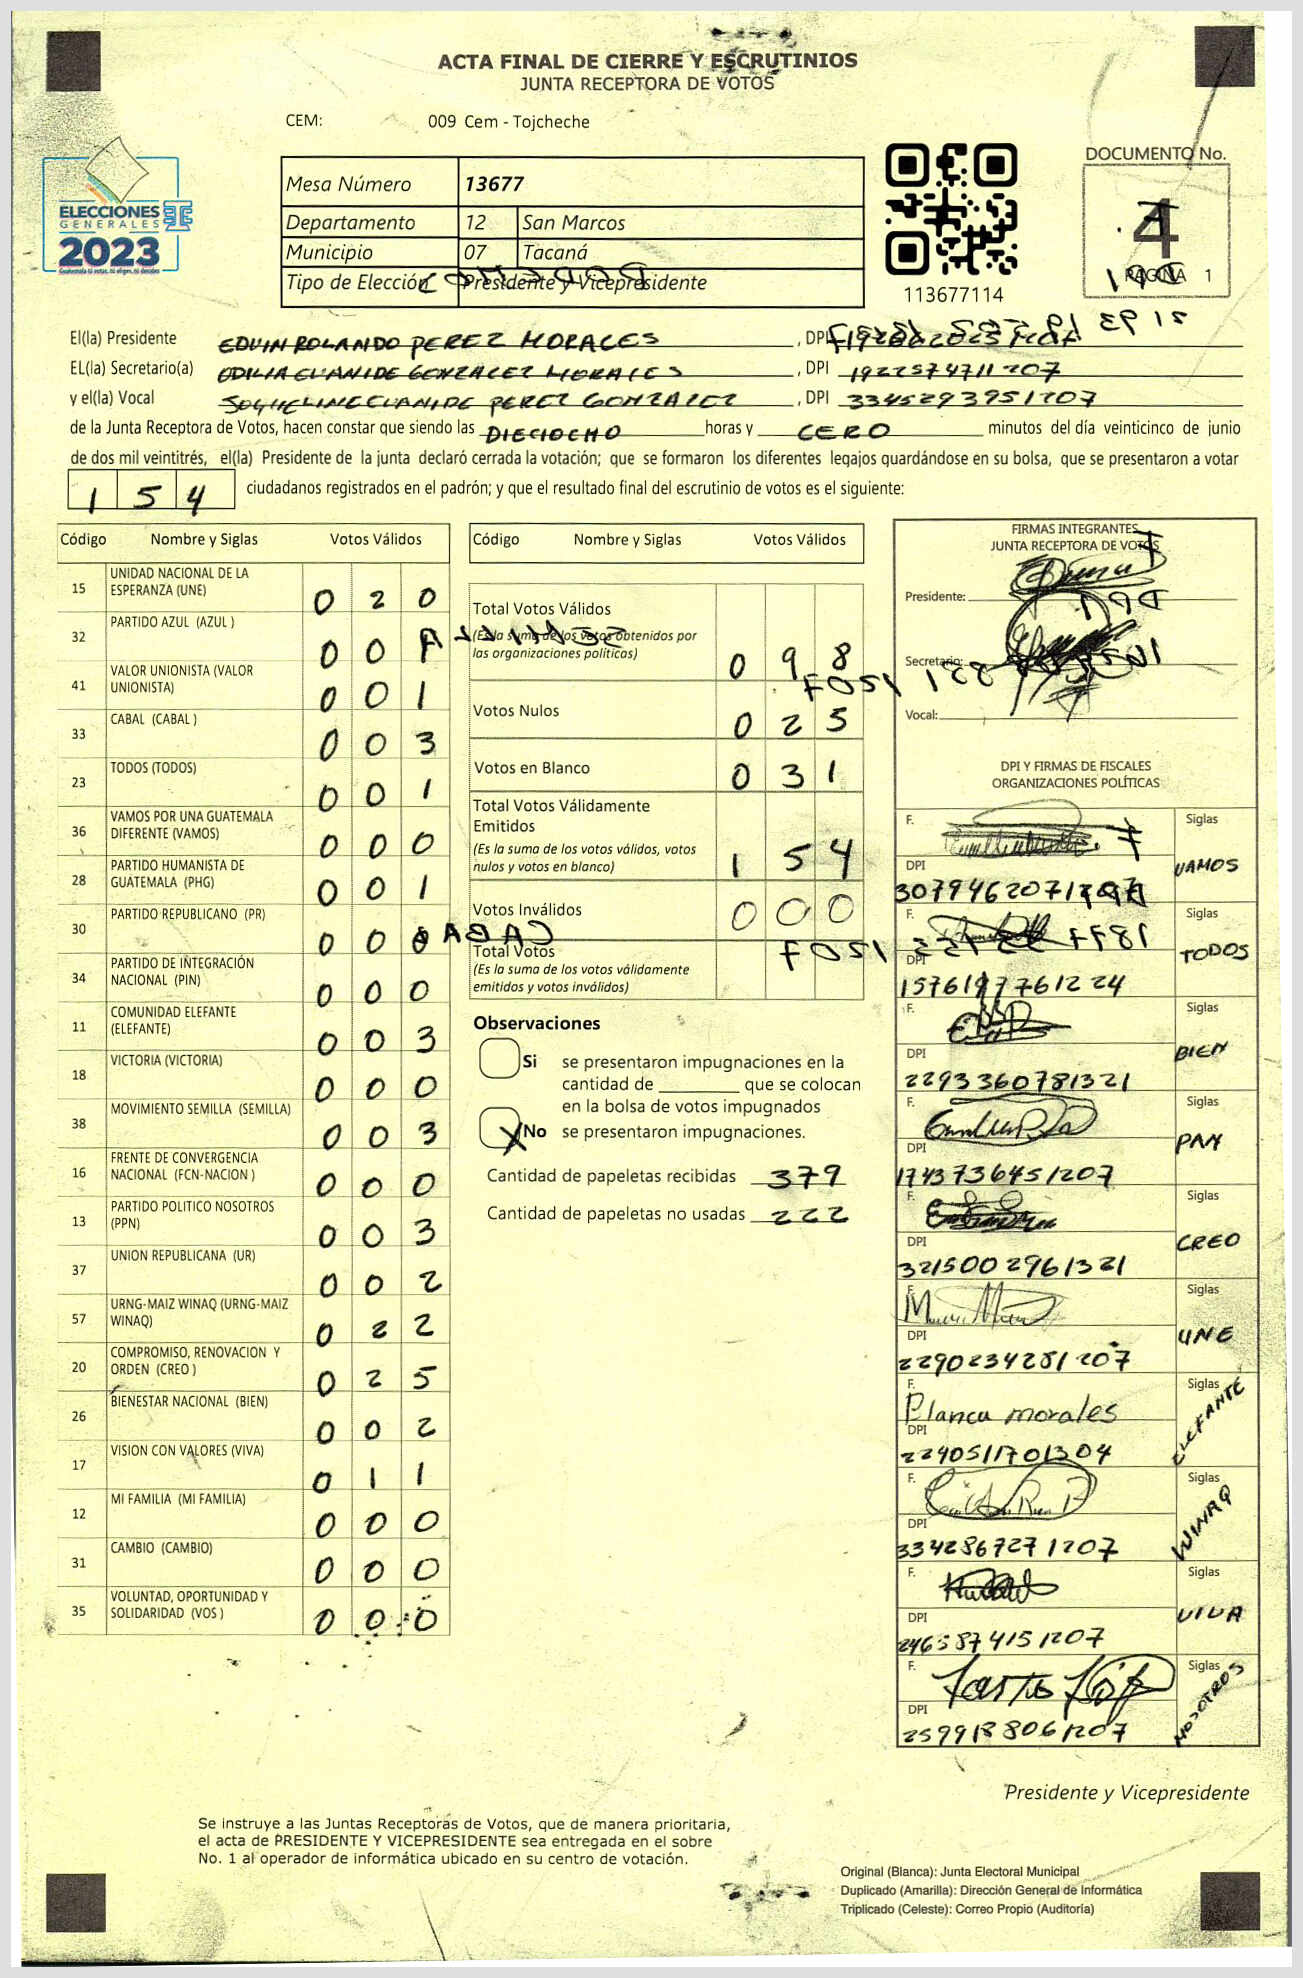 ACTA FINAL DE CIERRE Y ESCRUTINIOS
JUNTA RECEPTORA DE VOTOS
CEM: 009 Cem - Tojcheche
ELECCIONES
GENERALES
2023
Mesa Número 13677
Departamento 12 San Marcos
Municipio 07 Tacaná
Tipo de Elección Presidente y Vicepresidente
113677114
DOCUMENTO No.
4
PÁGINA 1
El(la) Presidente EDVIN ROLANDO PEREZ MORALES , DPI
EL(la) Secretario(a) ODILIA CUANIDE GONZALEZ MORALES , DPI 1922574711207
y el(la) Vocal JOQUELINE CUANIDE PEREZ GONZALEZ , DPI 3345293951207
de la Junta Receptora de Votos, hacen constar que siendo las DIECIOCHO horas y CERO minutos del día veinticinco de junio
de dos mil veintitrés, el(la) Presidente de la junta declaró cerrada la votación; que se formaron los diferentes legajos guardándose en su bolsa, que se presentaron a votar
154 ciudadanos registrados en el padrón; y que el resultado final del escrutinio de votos es el siguiente:
Código Nombre y Siglas Votos Válidos
15 UNIDAD NACIONAL DE LA ESPERANZA (UNE) 0 2 0
32 PARTIDO AZUL (AZUL ) 0 0
41 VALOR UNIONISTA (VALOR UNIONISTA) 0 0 1
33 CABAL (CABAL ) 0 0 3
23 TODOS (TODOS) 0 0 1
36 VAMOS POR UNA GUATEMALA DIFERENTE (VAMOS) 0 0 0
28 PARTIDO HUMANISTA DE GUATEMALA (PHG) 0 0 1
30 PARTIDO REPUBLICANO (PR) 0 0 0
34 PARTIDO DE INTEGRACIÓN NACIONAL (PIN) 0 0 0
11 COMUNIDAD ELEFANTE (ELEFANTE) 0 0 3
18 VICTORIA (VICTORIA) 0 0 0
38 MOVIMIENTO SEMILLA (SEMILLA) 0 0 3
16 FRENTE DE CONVERGENCIA NACIONAL (FCN-NACION ) 0 0 0
13 PARTIDO POLITICO NOSOTROS (PPN) 0 0 3
37 UNION REPUBLICANA (UR) 0 0 2
57 URNG-MAIZ WINAQ (URNG-MAIZ WINAQ) 0 2 2
20 COMPROMISO, RENOVACION Y ORDEN (CREO ) 0 2 5
26 BIENESTAR NACIONAL (BIEN) 0 0 2
17 VISION CON VALORES (VIVA) 0 1 1
12 MI FAMILIA (MI FAMILIA) 0 0 0
31 CAMBIO (CAMBIO) 0 0 0
35 VOLUNTAD, OPORTUNIDAD Y SOLIDARIDAD (VOS ) 0 0 0
Código Nombre y Siglas Votos Válidos
Total Votos Válidos
(Es la suma de los votos obtenidos por
las organizaciones políticas) 0 9 8
Votos Nulos 0 2 5
Votos en Blanco 0 3 1
Total Votos Válidamente
Emitidos
(Es la suma de los votos válidos, votos
nulos y votos en blanco) 1 5 4
Votos Inválidos 0 0 0
Total Votos
(Es la suma de los votos válidamente
emitidos y votos inválidos)
Observaciones
Si se presentaron impugnaciones en la
cantidad de ________ que se colocan
en la bolsa de votos impugnados
X No se presentaron impugnaciones.
Cantidad de papeletas recibidas 379
Cantidad de papeletas no usadas 222
FIRMAS INTEGRANTES
JUNTA RECEPTORA DE VOTOS
Presidente:
Secretario:
Vocal:
DPI Y FIRMAS DE FISCALES
ORGANIZACIONES POLÍTICAS
F. Siglas
DPI VAMOS
F. Siglas
DPI TODOS
1576197761224
F. Siglas
DPI BIEN
2293360781321
F. Siglas
DPI PAN
1743736451207
F. Siglas
DPI CREO
3215002961321
F. Siglas
DPI UNE
2290234281207
F. Blanca morales Siglas
DPI ELEFANTE
2290511701304
F. Siglas
DPI WINAQ
3342867271207
F. Siglas
DPI VIVA
2465874151207
F. Siglas
DPI NOSOTROS
2599188061207
Presidente y Vicepresidente
Se instruye a las Juntas Receptoras de Votos, que de manera prioritaria,
el acta de PRESIDENTE Y VICEPRESIDENTE sea entregada en el sobre
No. 1 al operador de informática ubicado en su centro de votación.
Original (Blanca): Junta Electoral Municipal
Duplicado (Amarilla): Dirección General de Informática
Triplicado (Celeste): Correo Propio (Auditoría)